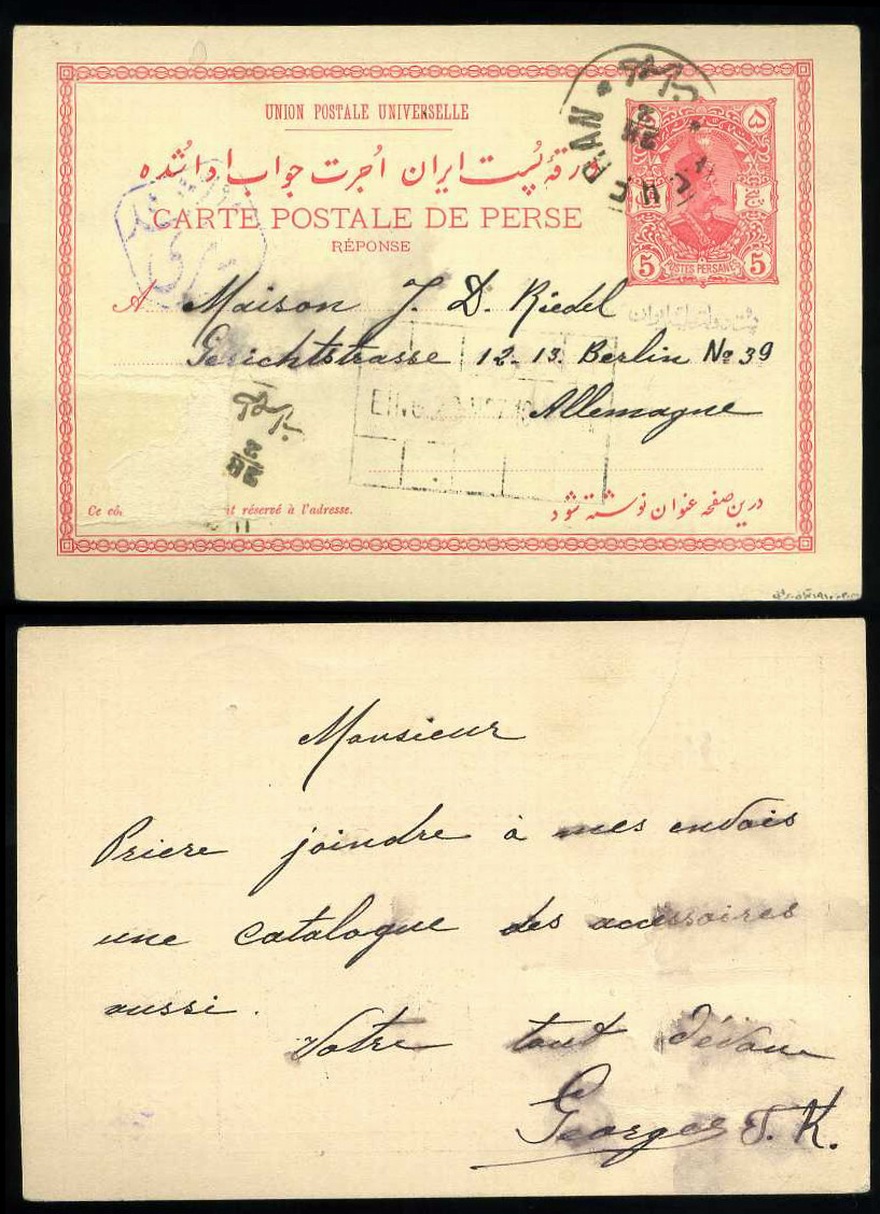 UNION POSTALE UNIVERSELLE
ورقهٔ پُست ایران اُجرت جواب ادا شُده
CARTE POSTALE DE PERSE
RÉPONSE
۵
5 POSTES PERSANES 5
A Maison J. D. Riedel
Gerichtstrasse 12-13. Berlin No 39
Allemagne
EING.
Ce côt
it réservé à l'adresse.
درین صفحه عنوان نوشته شود
Monsieur
Prière joindre à mes envois
une catalogue des accessoires
aussi.
Votre tout dévoué
Georges T. K.